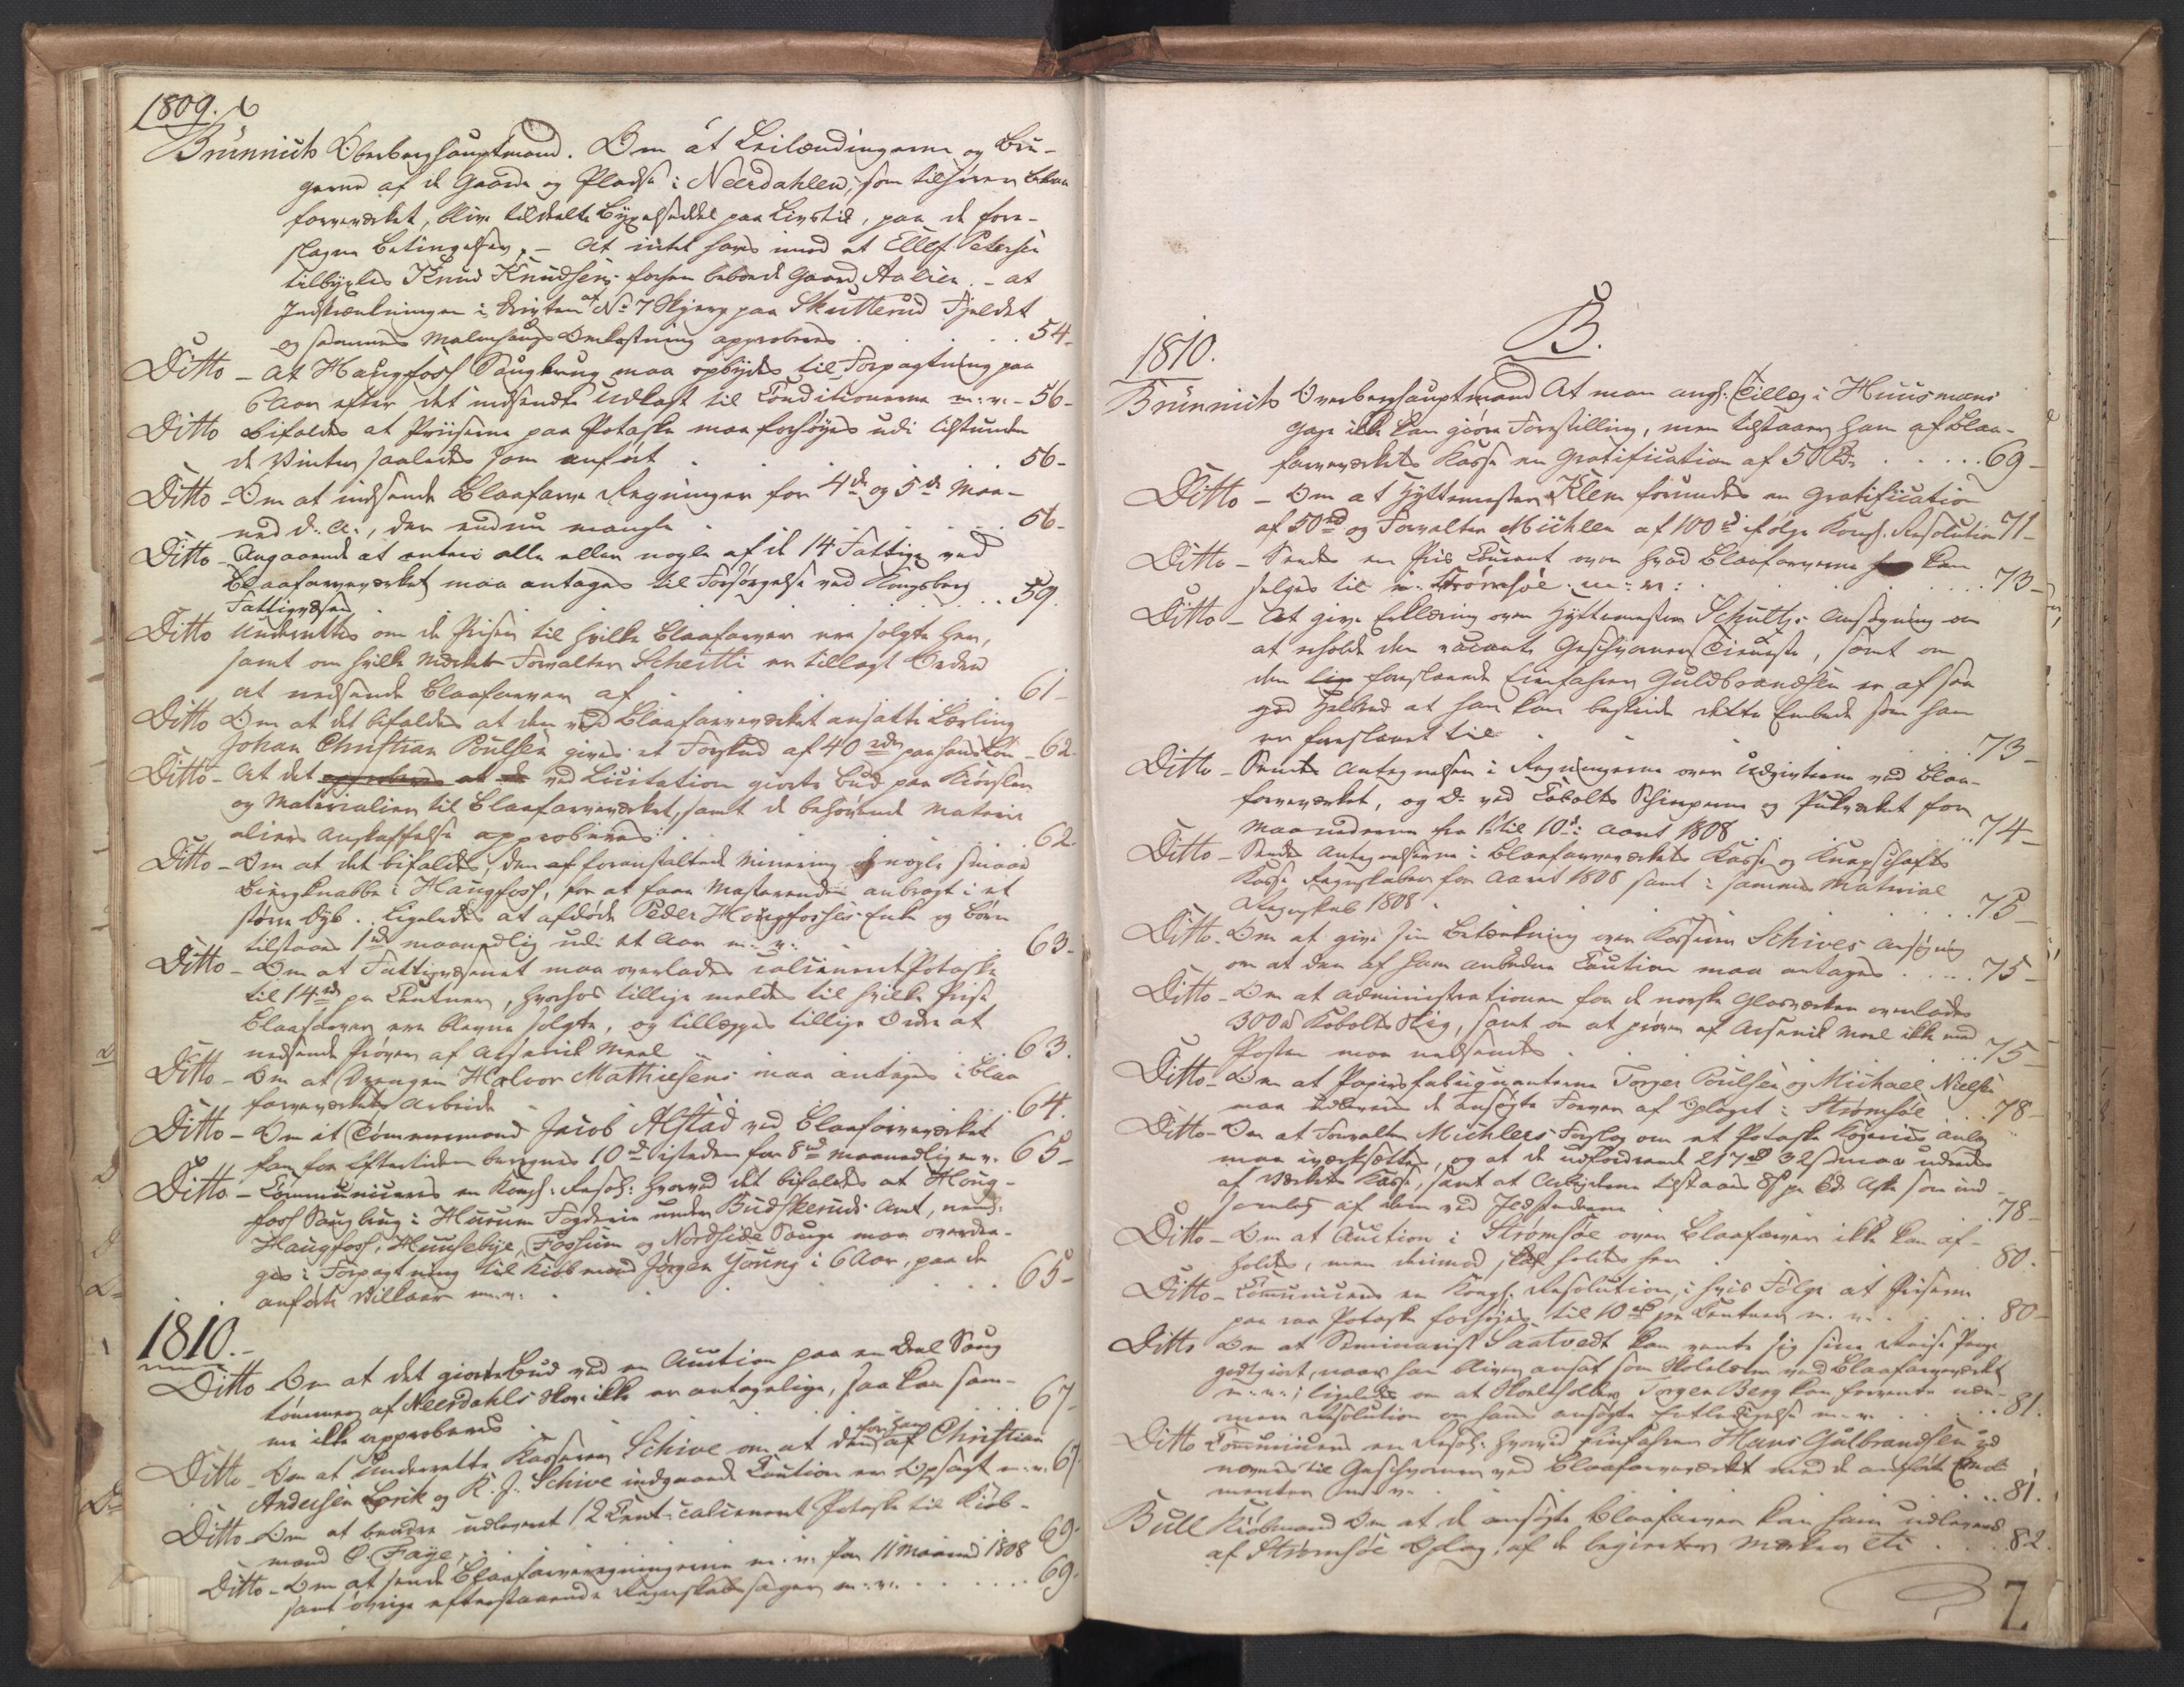 1809.
Brünnich Oberberghauptmand. Om at Leilændingerne og Bru-
gerne af de Gaarde og Pladse i Neesdahlen, som tilhører Blaa
farveværket, blive tildeelte Bygselseddel paa Livstid, paa de fore-
slagne Betingelser, - At intet haves imod at Ellef Petersen
tilbygles Knud Knudsens forhen beboede Gaard Aalien. - at
Indskrænkningen i Driften af No 7 Skjerp paa Skutterud Fjeldet
og sammes Malmhuus Omkostning approberes . . . 54-
Ditto - At Haugfoss Saugbrug maa opbydes til Forpagtning paa
6 Aar efter det indsendte Udkast til Conditionerne m: v: - 56-
Ditto bifaldes at Priiserne paa Potaske maa forhøyes udi tilstunden
de Vinter saaledes som anført . . . 56-
Ditto - Om at indsende Blaafarve Regninger for 4de og 5te Maa-
ned d: A:, der endnu mangle . . . 56-
Ditto - Angaaende at enten alle eller nogle af de 14 Fattige ved
Blaafarveværket maa antages til Forsørgelse ved Kongsberg
Fattigvæsen . . . 59.
Ditto Underrettes om de Prisen til hvilke Blaafarver ere solgte her,
samt om hvilke Mærker Forvalter Scheitti er tillagt Ordre
at nedsende Blaafarver af . . . 61-
Ditto Om at det bifaldes at den ved Blaafarveværket ansatte Lærling
Johan Christian Poulsen gives et Forskud af 40 rdr paa hans Løn - 62.
Ditto - At det ved Licitation giorte Bud paa Kiørsler
og Materialier til Blaafarveværket, samt de behøvende Materi
aliers Anskaffelse approberes . . . 62.
Ditto - Om at det bifaldes, den af foranstaltede Minering af nogle smaae
Biergknabbe i Haugfoss, for at faae Mastrende anbragt i et
større Dyb. Ligeledes at afdøde Peder Hougfosses Enke og Børn
tilstaaes 1 rd maanedlig udi et Aar m: v: . . . 63-
Ditto - Om at Fattigvæsenet maa overlades calcineret Potaske
til 14 rd pr Centner, hvorhos tillige meldes til hvilke Prise
Blaafarver ere blevne solgte, og tillægges tillige Ordre at
nedsende Prøver af Arsenik Meel . . . 63.
Ditto - Om at Drengen Halvor Mathiesens maa antages i Blaa
farveværkets Arbeide . . . 64.
Ditto - Om at Tømmermand Jacob Alstad ved Blaafarveværket
kan for Eftertiden beregnes 10 rd istedenfor 8 rd maanedlig m. v. 65-
Ditto - Communiceres en Kongl: Resol: hvorved det bifaldes at Houg-
foss Saugbrug i Hurum Fogderie under Budskeruds Amt, nemlig:
Haugfoss, Huusebye, Fossum og Nordside Sauge maa overdra-
ges i Forpagtning til Kiøbmand Jørgen Young i 6 Aar, paa de
anførte Villkaar m. v. . . . 65-
1810.
Ditto Om at det giorte Bud ved en Auction paa en Deel Saug
tømmer af Neesdahls Skov ikke er antagelige, saa kan sam-
me ikke approberes . . . 67-
Ditto - Om at underrette Kasserer Schive om at den forhen af Christian
Andersen Lorik og R. J. Schive indgaaede Caution er Opsagt m. v. 67.
Ditto - Om at bemdre udleveret 12 Cent: calcineret Potaske til Kiøb-
mand C. Faye, . . . 69.
Ditto - Om at sende Blaafarveregningerne m. v. for 11 Maaned 1808
samt øvrige efterstaaende Regnskabssager m: v: . . . 69.
B.
1810.
Brünnich Overberghauptmand At man angl: Tillæg i Huusmans
Gage ikke kan giøre Forestilling, men tilstaaer ham af Blaa-
farveværkets Kasse en Gratification af 50 Rd . . . 69-
Ditto - Om at Hyttemester Klem forundes en Gratification
af 50 rd og Forvalter Mühlen af 100 rd ifølge Kongl. Resolution 71-
Ditto - Sendes en Priis Courant over hvad Blaafarverne kan
selges til i Strømsøe m: v: . . . 73-
Ditto - At give Erklæring over Hyttemester Schultz's Ansøgning om
at erholde den vacante Geschworner Tieneste, samt om
den foreslaaede Einfahrer Guldbrandsen er af saa
god Helbred at han kan bestride dette Embede som han
er foreslaaet til . . . 73-
Ditto - Sendes Antegnelser i Regningerne over Udgivterne ved Blaa-
farveværket, og Do ved Cobolts Schürperne og Pukværket for
Maanederne fra 1ste til 10de: Aaret 1808 . . . 74-
Ditto - Sendes Antegnelserne i Blaafarveværkets Kasse og Knapschafts
Kasse Regnskaber for Aaret 1808 samt i sammes Material
Regnskab 1808 . . . 75-
Ditto - Om at give sin Betænkning over Kasserer Schives Ansøgning
om at den af ham anbudne Caution maa antages . . . 75-
Ditto - Om at Administrationen for de norske Glasværker overlades
300 ℔ Kobolt Slig, samt om at prøver af Arsenik Meel ikke med
Posten maa nedsendes . . . 75-
Ditto - Om at Papirsfabriquanterne Torger Poulsen og Michael Nielsen
maa udleveres de ansøgte Farver af Oplaget i Strømsøe . . . 78-
Ditto - Om at Forvalter Michlers Forslag om et Potaske Kogeries Anlæg
maa iværksættes, og at de udfordrende 217 rd 32 s maa udredes
af Værkets Kasse, samt at Arbeiderne tilstaaes 8 s pr Td. Aske som ind
samles af dem ved Ildstederne . . . 78-
Ditto - Om at Auction i Strømsøe over Blaafarver ikke kan af-
holdes, men derimod skal holdes her . . . 80.
Ditto - Communiceres en Kongl. Resolution, i hvis Følge at Priserne
paa raa Potaske forhøjes til 10 rd pr Centner m. v. . . . 80-
Ditto Om at Seminarist Saatvedt kan vente sig sine Reise Penge
godtgiort, naar han bliver ansat som Skolelærer ved Blaafarveværket
m: v:; ligeledes om at Skoleholder Torger Berg kan forvente nær-
mere Resolution om hans ansøgte Entledigelse m. v. . . . 81.
Ditto Communiceres en Resol: hvorved Einfahrer Hans Gulbrandsen ud
nævnes til Geschworner ved Blaafarveværket med de anførte Emolu
menter m. v. . . . 81.
Bull Kiøbmand Om at de ansøgte Blaafarver kan ham udleveres
af Strømsøe Oplag, af de begierte Mærker etc . . . 82.
Z